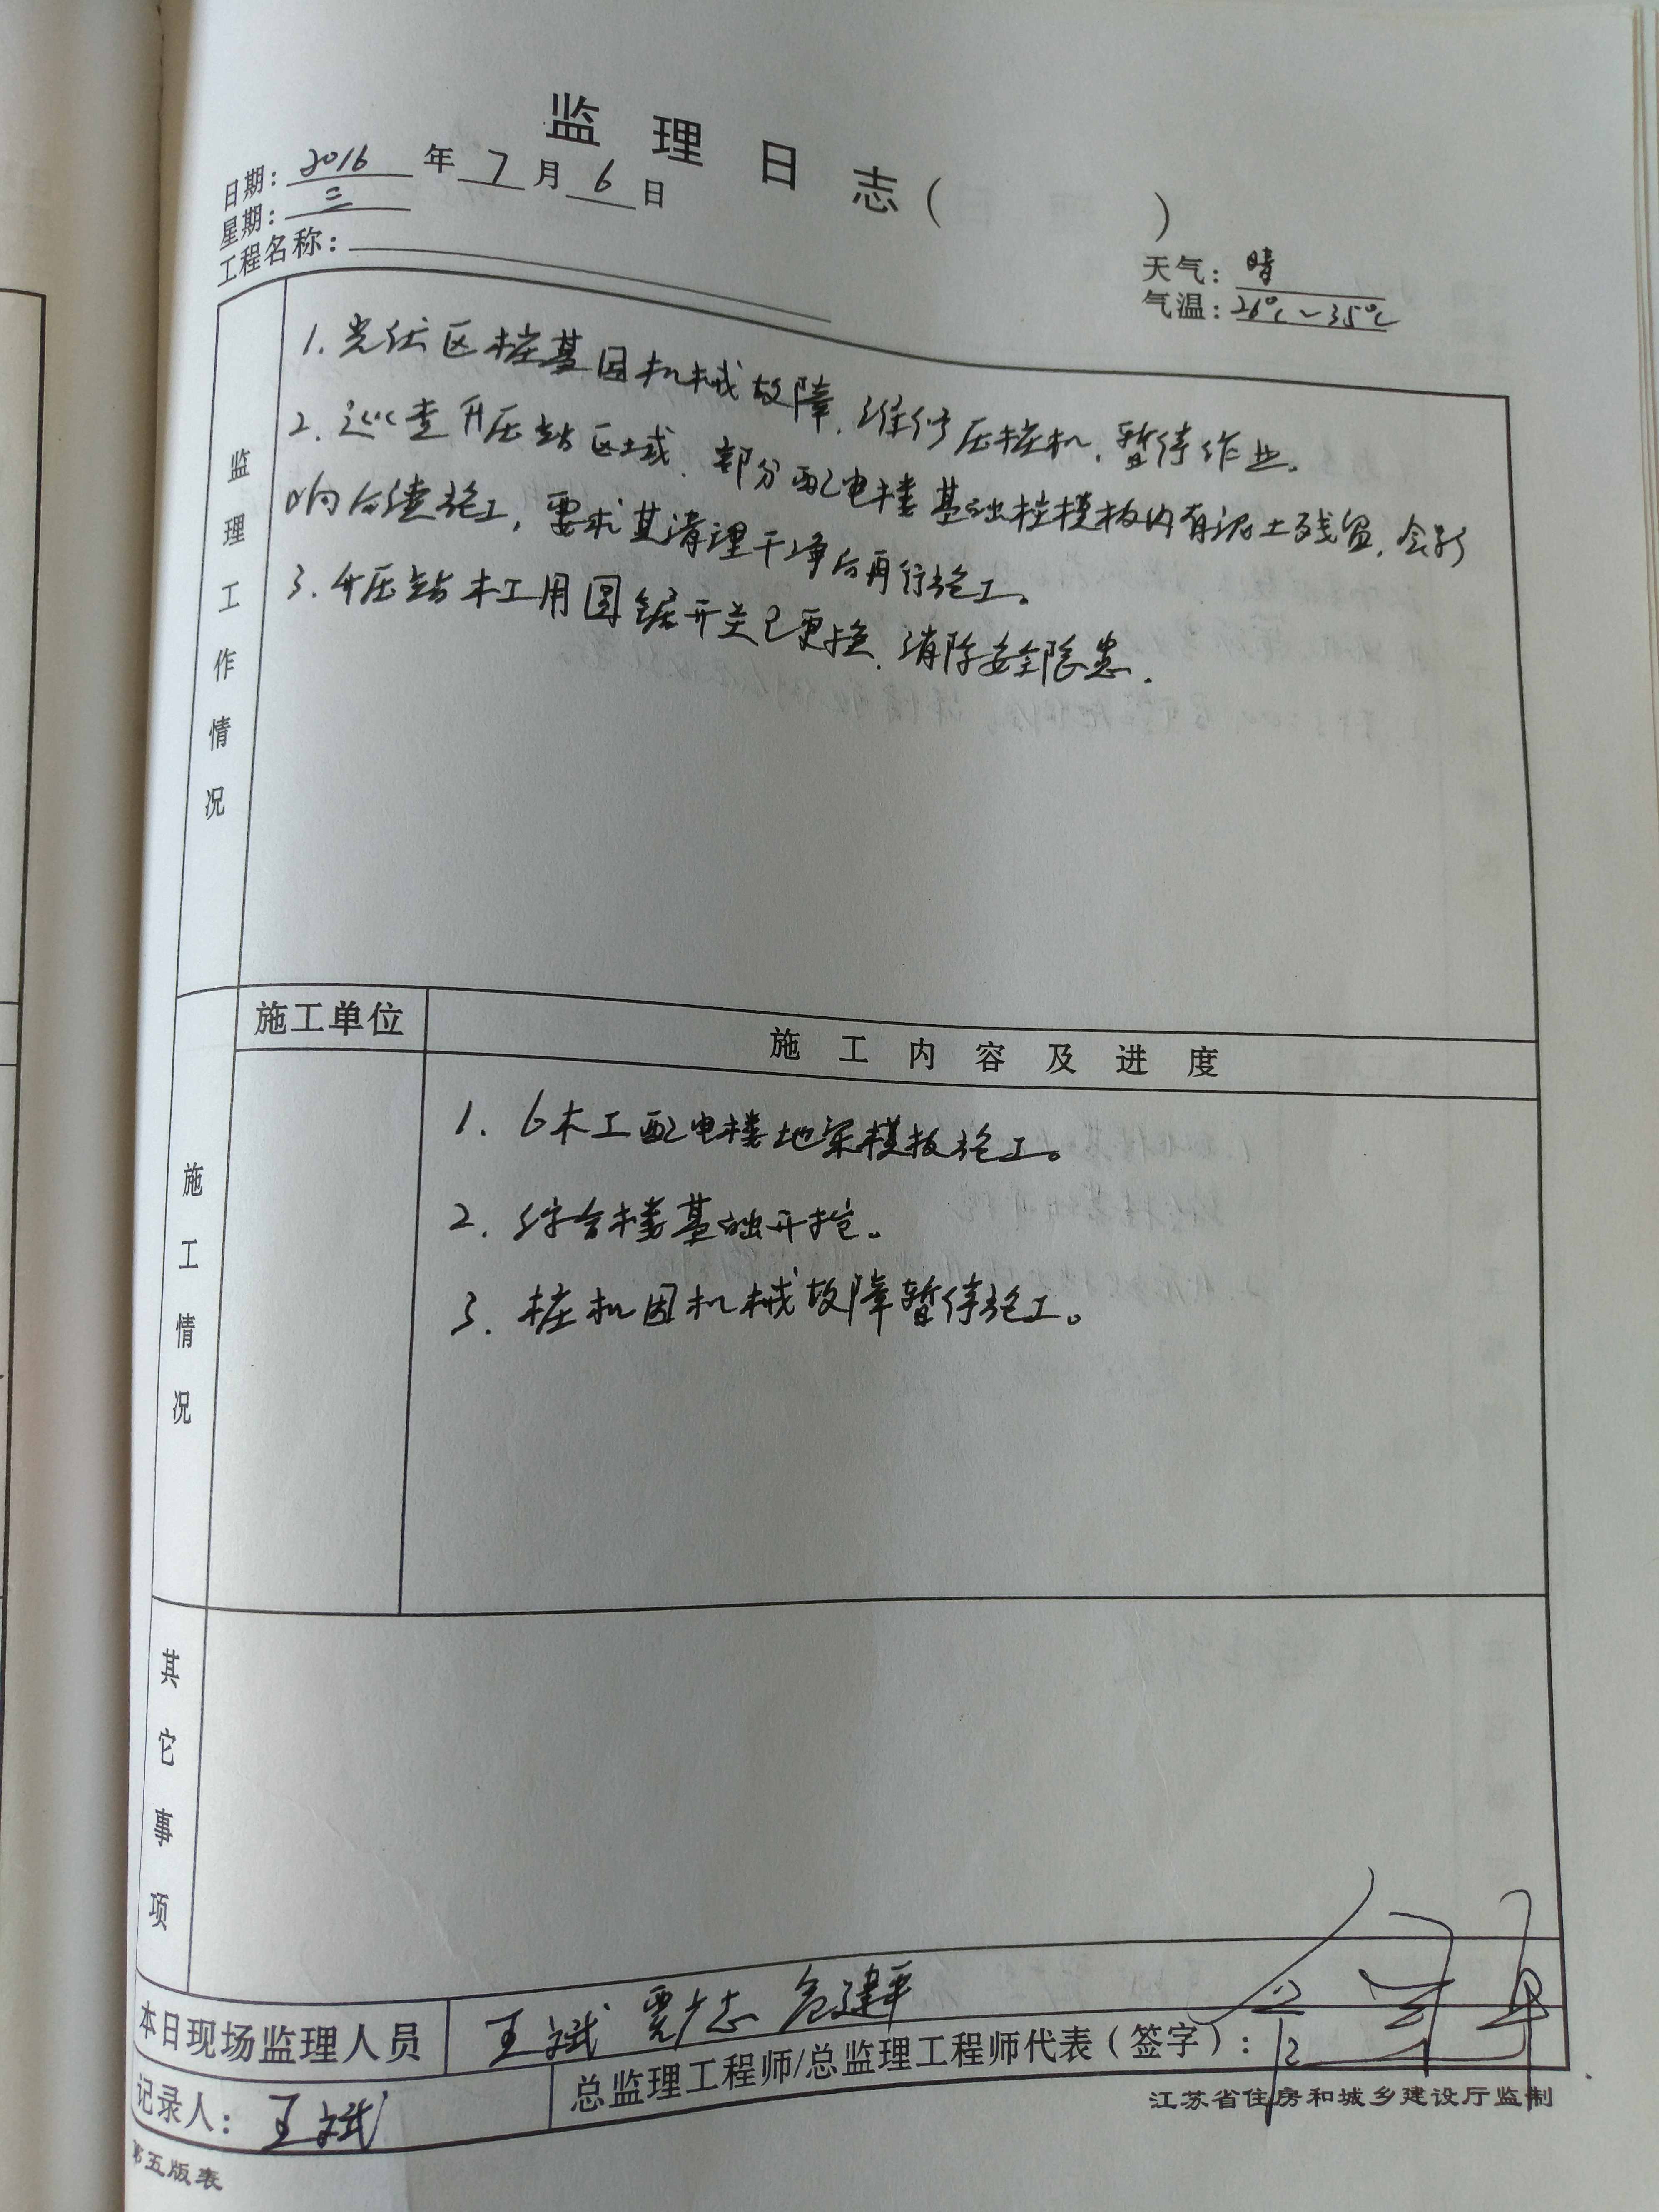 监理日志( )
日期: 2016 年 7 月 6 日
星期: 三
工程名称:
天气: 晴
气温: 26℃~35℃
监理工作情况
1. 光伏区桩基因机械故障, 维修压桩机, 暂停作业。
2. 巡查升压站区域, 部分配电楼基础柱模板内有泥土残留, 会影
响后续施工, 要求其清理干净后再行施工。
3. 升压站木工用圆锯开关已更换, 消除安全隐患.
施工情况
施工单位
施工内容及进度
1. 6木工配电楼地梁模板施工。
2. 综合楼基础开挖。
3. 桩机因机械故障暂停施工。
其它事项
本日现场监理人员
王斌 贾广志 危建平
记录人: 王斌
总监理工程师/总监理工程师代表(签字):
江苏省住房和城乡建设厅监制
第五版表